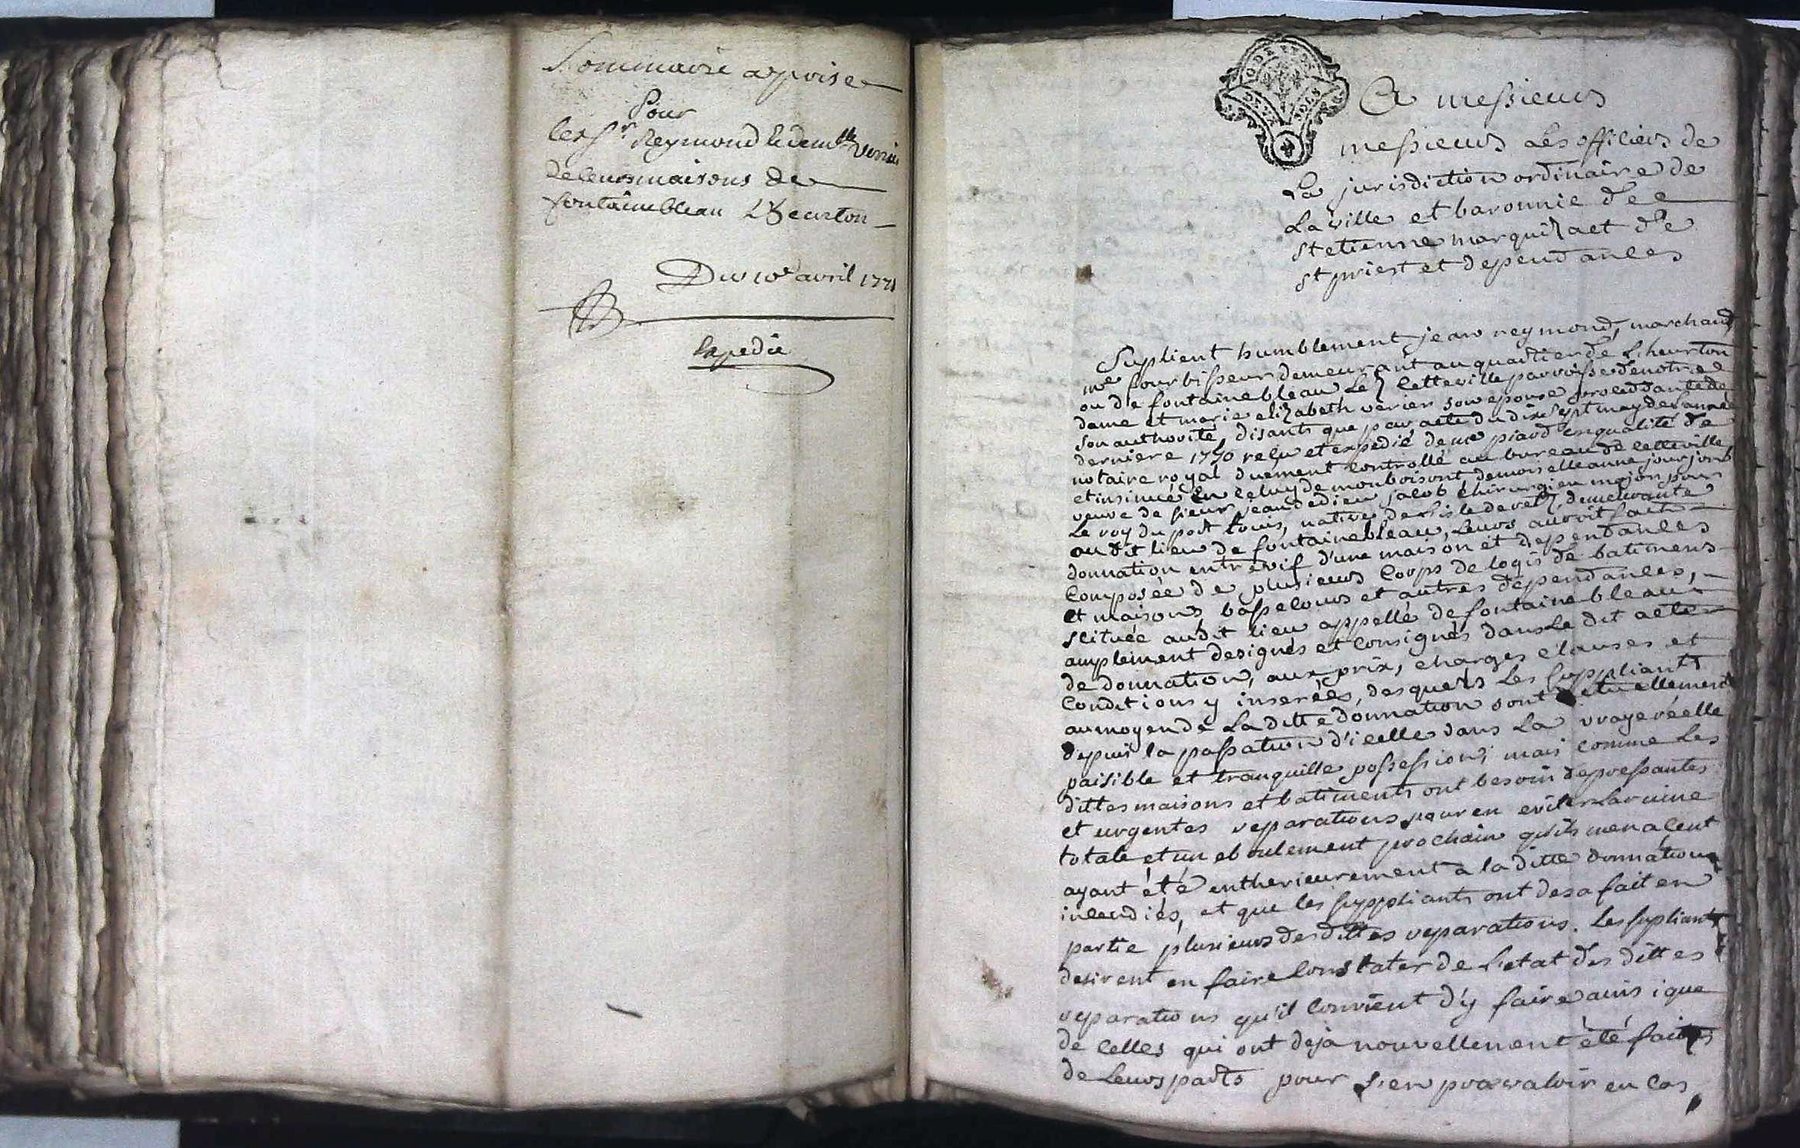 Sommaire aprise
Pour
les Sr Reymond & demlle verrier
de leurs maisons de
fontainebleau & heurton
Du 10e avril 1771
Expedie
A messieurs
messieurs Les officiers de
La jurisdiction ordinaire de
La ville et baronnie de
st etienne marquizaet de
st priest et dependances
Suplient humblement jean reymond, marchand
me fourbisseur demeurant au quartier de L'heurton
ou de fontainebleau Lez Cetteville parroisse de notre
dame et marie elizabeth verier son epouse procedante de
son authorité, disants que par acte du dix sept may de l'année
derniere 1770 reçu et expedié de me piard en qualité de
notaire royal duement controllé au bureau de cetteville
et insinué en celuy de monboisont, demoiselle anne jourjon
veuve de sieur jean dedieu jacob chirurgien major pour
Le roy du port Louis, native de L'isle de rez demeurante
au dit lieu de fontainebleau, Leurs auroit fait
donnation entrevif d'une maison et dependances
Composée de plusieurs Corps de logis de batimens
et maisons, bassecours et autres dependances,
scituée audit lieu appellé de fontainebleau
amplement designés et Consignés dans Le dit acte
de donnation, aux prix, charges clauses et
Conditions y inserées, desquels Les suppliants
au moyen de La ditte donnation sont actuellement
depuis la passation d'icelle dans La vraye réelle
paisible et tranquille possession; mais comme Les
dittes maisons et batiments ont besoin de pressantes
et urgentes reparations pour en eviter La ruine
totale et un eboulement prochain qu'ils menacent
ayant été entherieurement a la ditte donnation
incendiés, et que les suppliants ont desa fait en
partie plusieurs des dittes reparations. Les supliants
desirent en faire Constater de L'etat des dittes
reparations qu'il Convient d'y faire ainsi que
de Celles qui ont deja nouvellement été faites
de Leurs parts pour s'en prevaloir en Cas